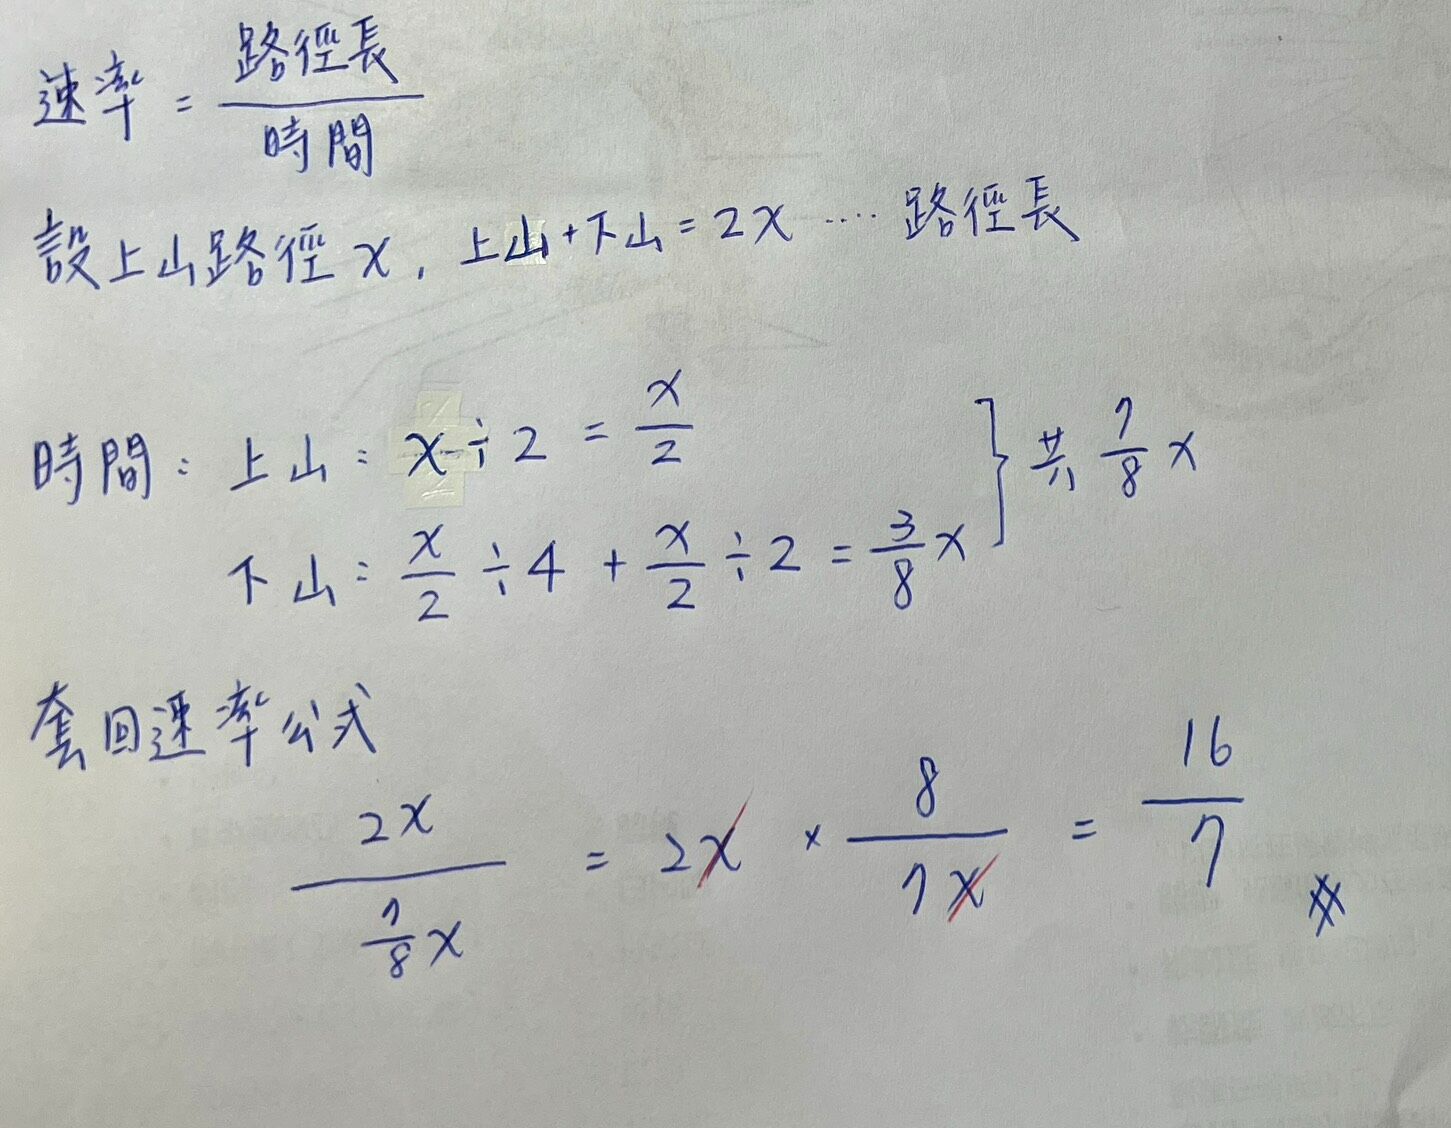 速率 = 路徑長/時間
設上山路徑 x, 上山+下山=2x ···· 路徑長
時間: 上山: x÷2 = x/2
下山: x/2 ÷4 + x/2 ÷2 = 3/8 x } 共 7/8 x
套回速率公式
2x / (7/8 x) = 2x × 8/7x = 16/7 #